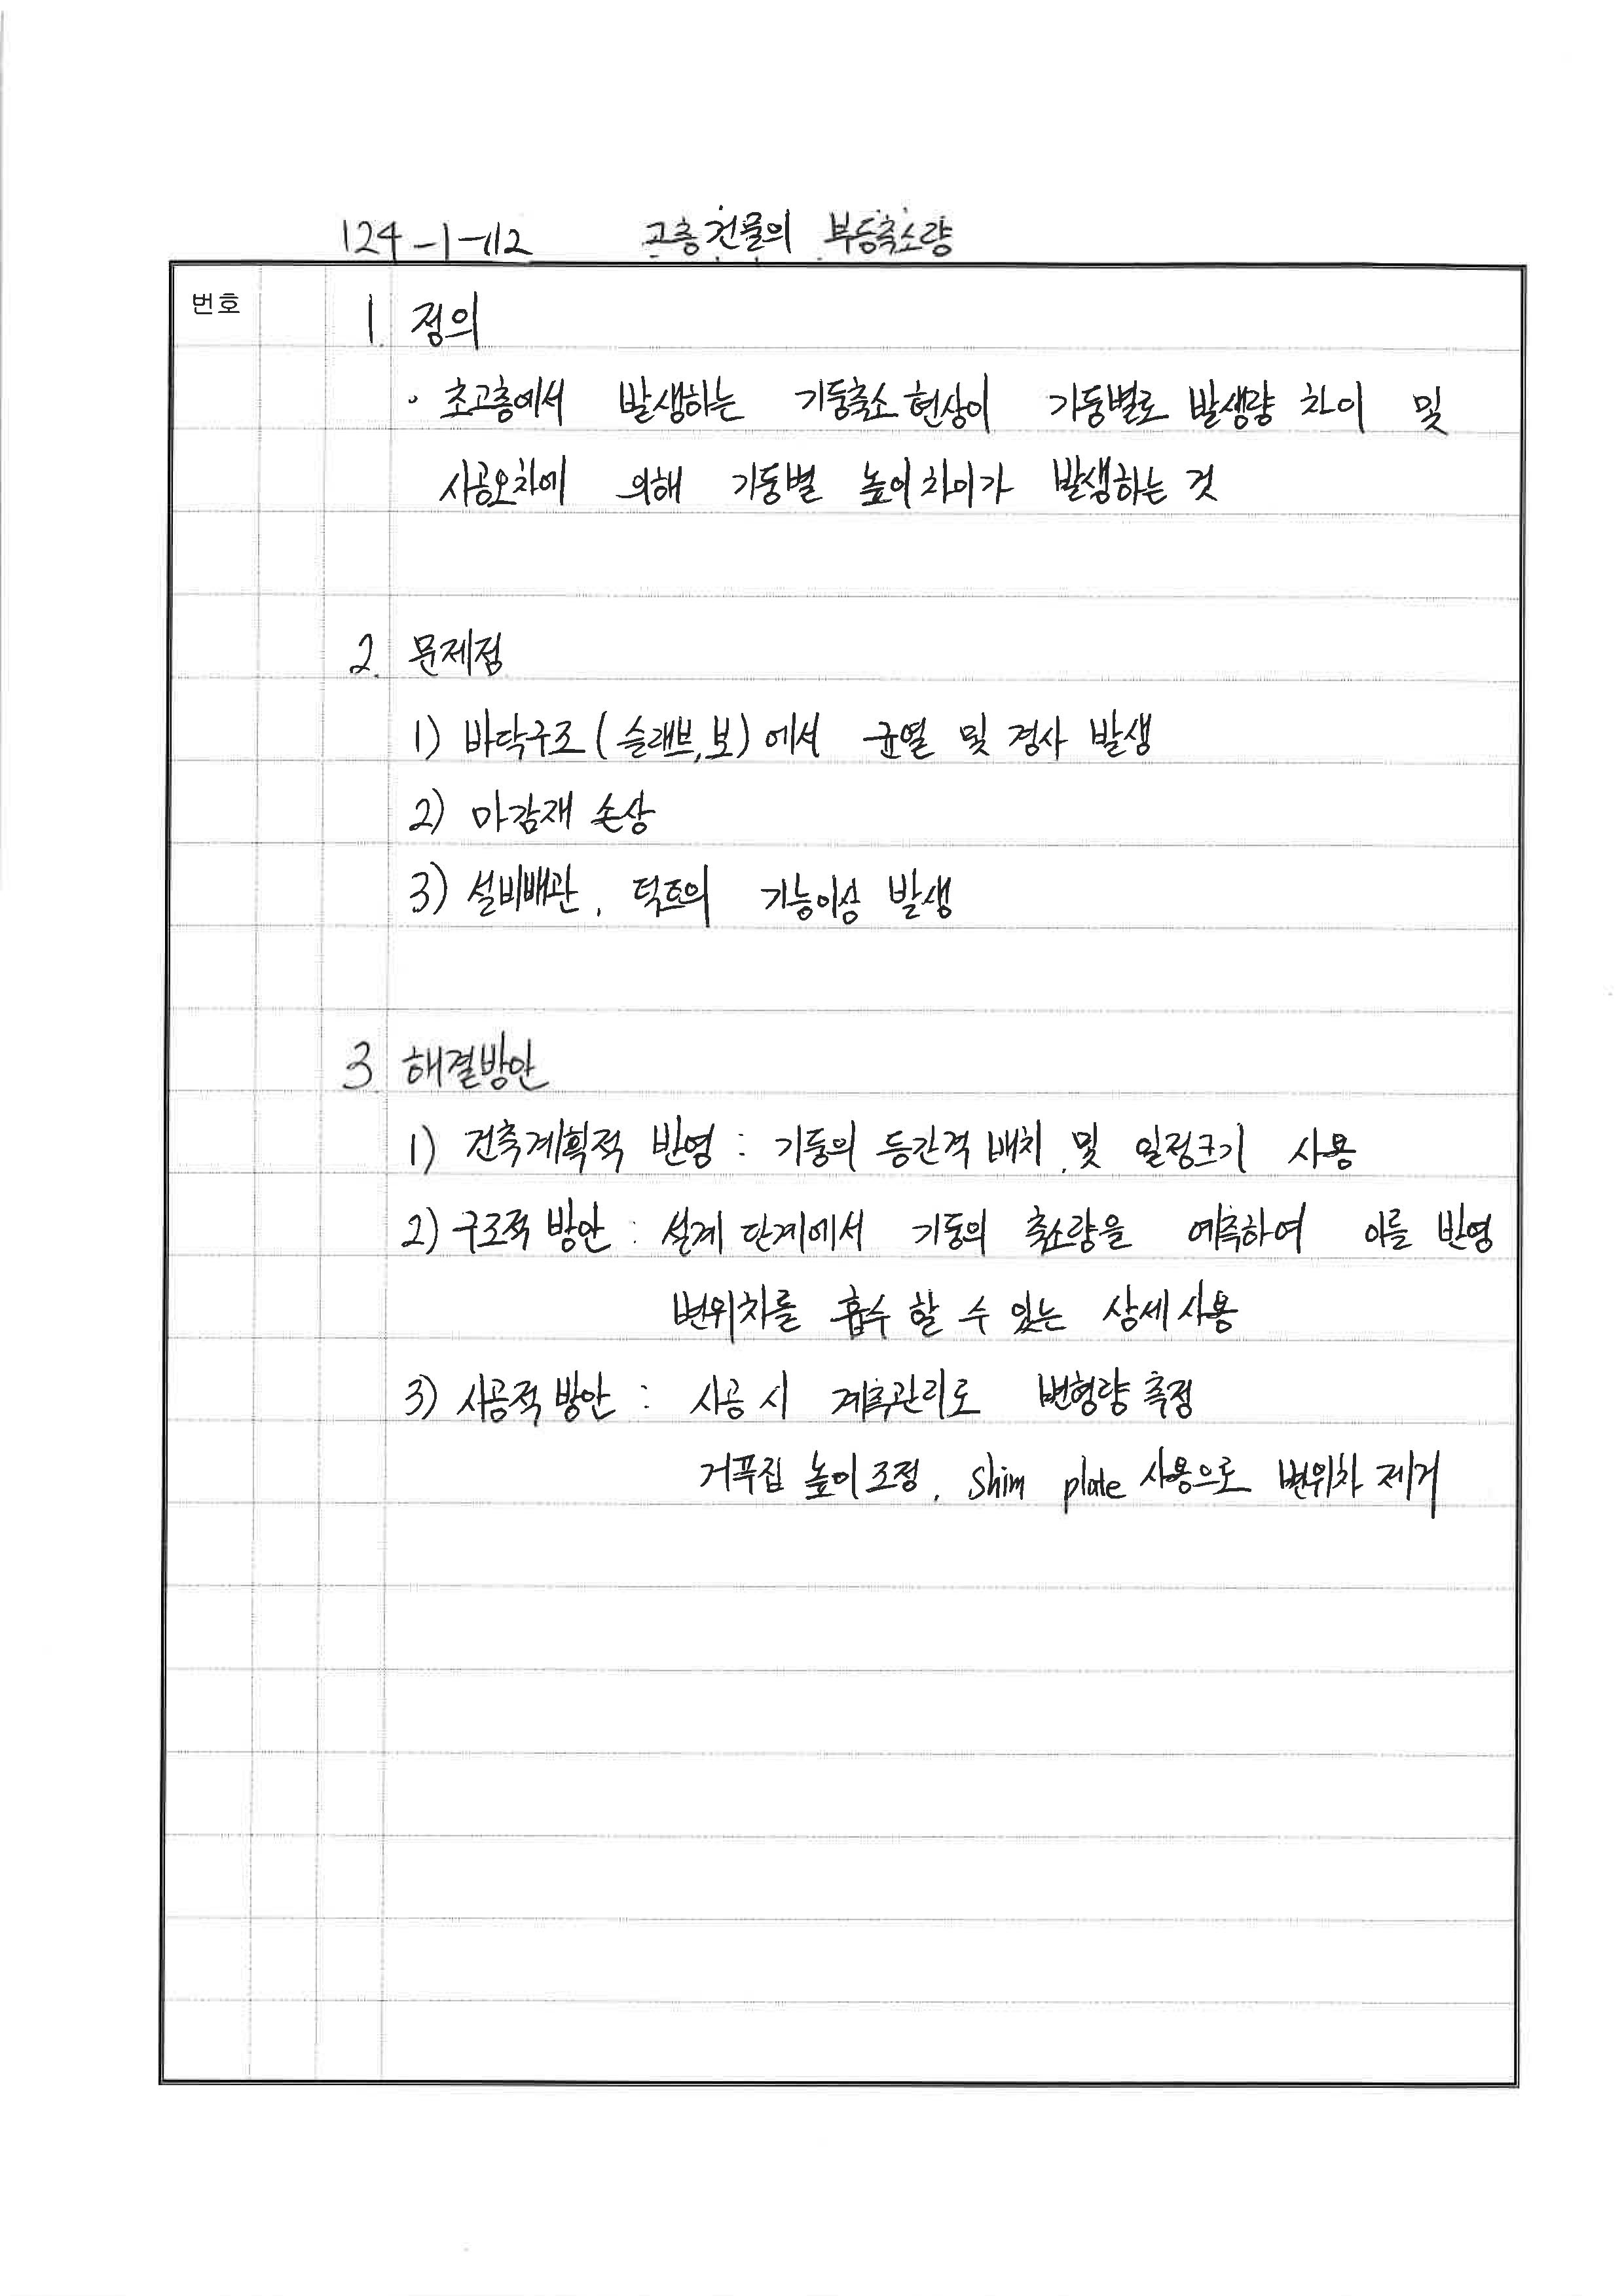 124-1-12 고층건물의 부등축소량
번호
1. 정의
· 초고층에서 발생하는 기둥축소현상이 기둥별로 발생량 차이 및
시공오차에 의해 기둥별 높이차이가 발생하는 것
2. 문제점
1) 바닥구조(슬래브,보)에서 균열 및 경사 발생
2) 마감재 손상
3) 설비배관, 덕트의 기능이상 발생
3. 해결방안
1) 건축계획적 반영 : 기둥의 등간격 배치 및 일정크기 사용
2) 구조적 방안 : 설계 단계에서 기둥의 축소량을 예측하여 이를 반영
변위차를 흡수 할 수 있는 상세 사용
3) 시공적 방안 : 시공 시 계측관리로 변형량 측정
거푸집 높이조정, shim plate 사용으로 변위차 제거